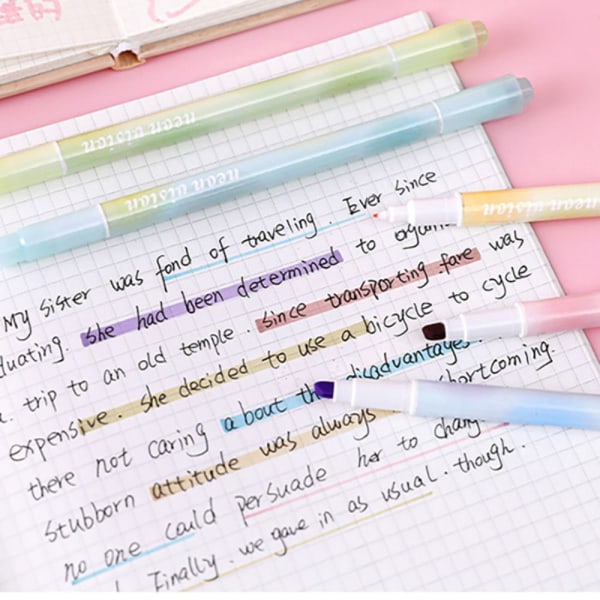 neon vision
neon vision
neon vision
My sister was fond of traveling. Ever since
she had been determined to
a trip to an old temple. since transporting fare was
expensive. She decided to use a bicycle to cycle
there not caring about the disadvantages.
stubborn attitude was always shortcoming.
no one could persuade her to
Finally. we gave in as usual. though.